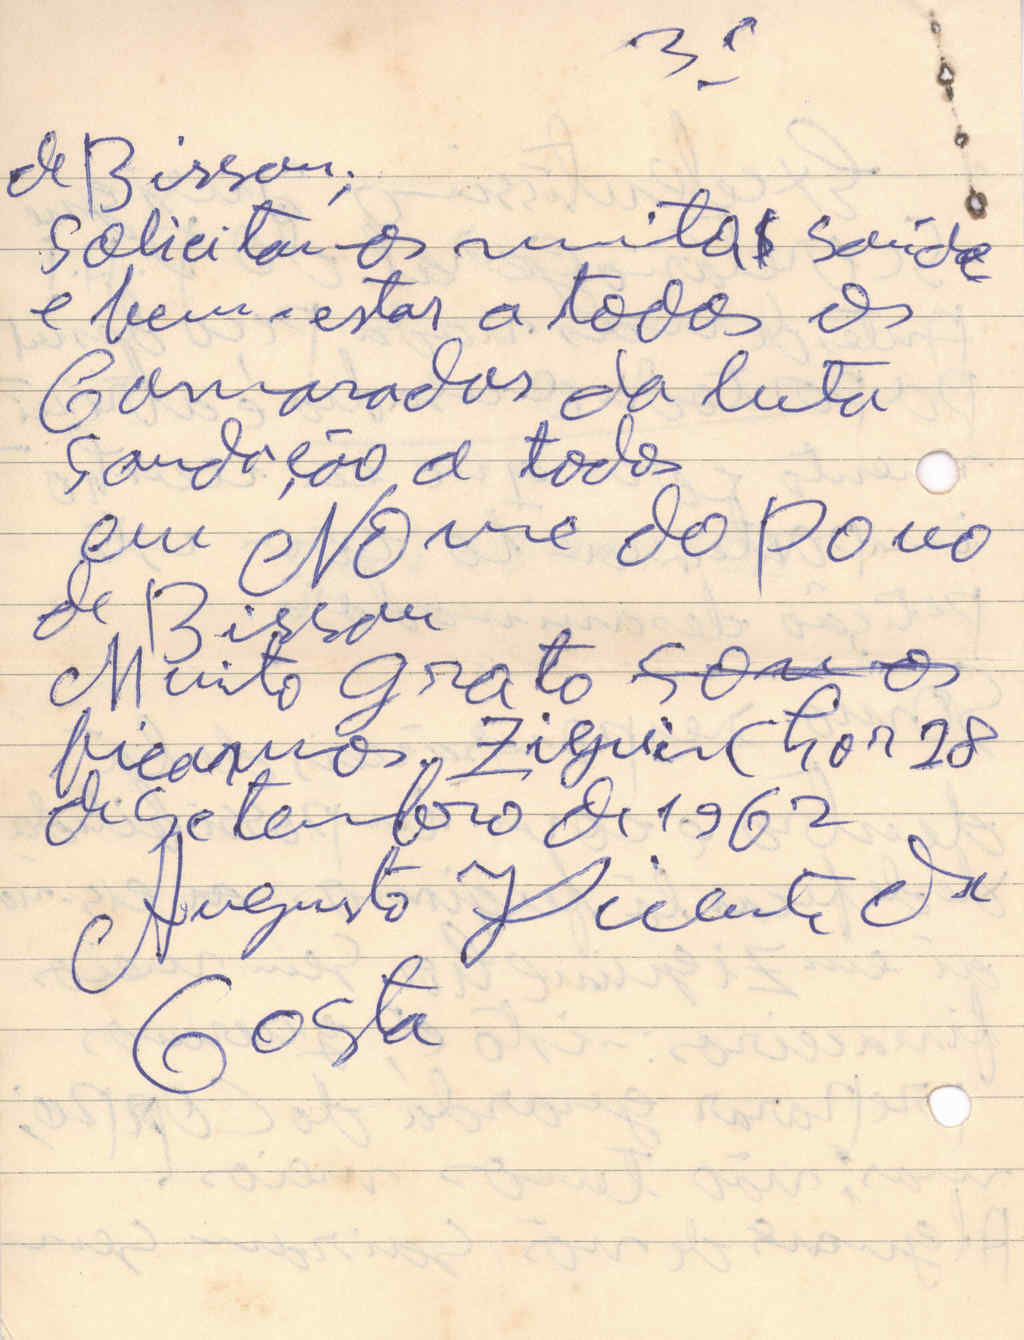 3º
de Bissau;
Solicitamos muita saúde
e bem-estar a todos os
Camaradas da luta
saudação a todos
em Nome do povo
de Bissau
Muito grato somos
ficamos. Ziguinchor 28
de Setembro de 1962
Augusto Vicente da
Costa